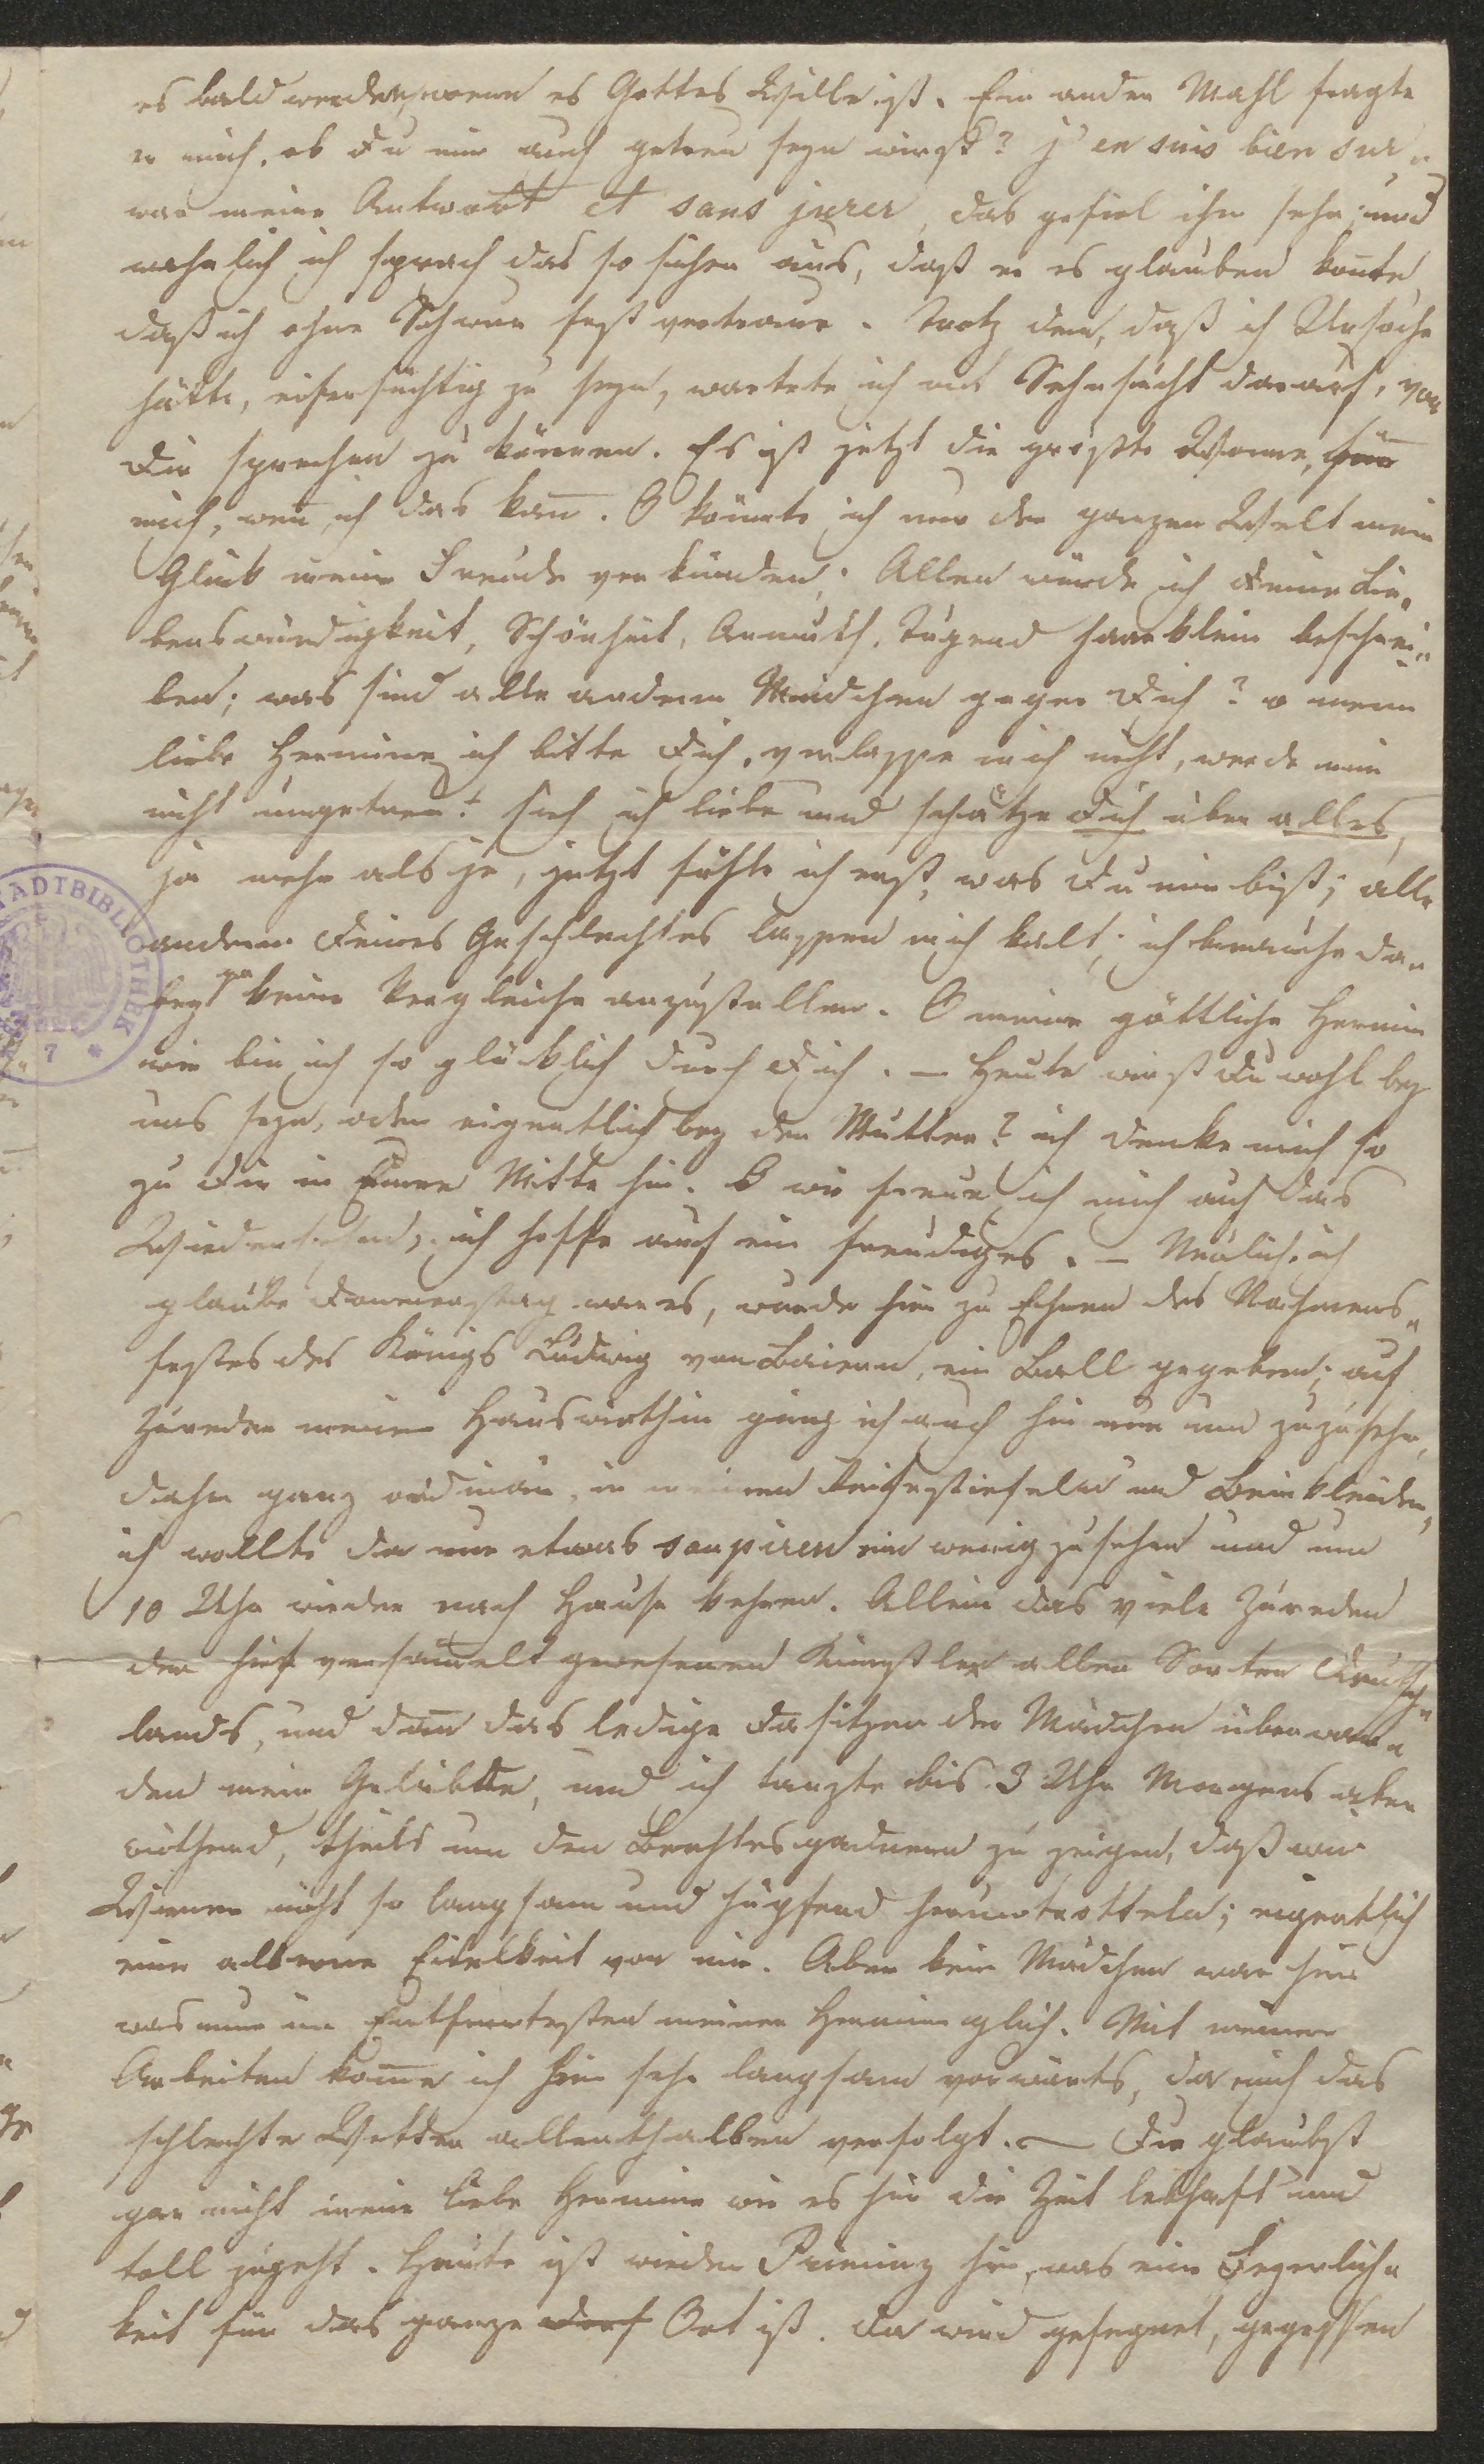 es bald werden, wenn es Gottes Wille ist. Ein ander Mahl fragte
er mich, ob Du mir auch getreu seyn wirst? j'en suis bien sur,
war meine Antwort et sans jurer, das gefiel ihm sehr; und
wahrlich ich sprach das so sicher aus, daß er es glauben konte,
daß ich ohne Schwur fest vertraue. Trotz dem, daß ich Ursache
hätte, eifersüchtig zu seyn, wartete ich mit Sehnsucht darauf, von
Dir sprechen zu können. Es ist jetzt die größte Wonne, für
mich, wen̄ ich das kan̄. O könnte ich nur der ganzen Welt mein
Glück meine Freude verkünden; Allen würde ich Deine Lie-
benswürdigkeit, Schönheit, Anmuth, Tugend haarklein beschrei-
ben; was sind alle anderen Mädchen gegen Dich? o meine
liebe Hermine, ich bitte Dich, verlasse mich nicht, werde mir
nicht ungetreu! sieh ich liebe und schätze Dich über alles,
ja mehr als je, jetzt fühle ich erst, was Du mir bist; alle
andern Deines Geschlechtes lassen mich kalt; ich brauche da-
bey gar keine Vergleiche anzustellen. O meine göttliche Hermin
wie bin ich so glücklich durch Dich. – Heute wirst Du wohl bey
uns seyn, oder eigentlich bey der Mutter? ich denke mich so
zu Dir in Eurer Mitte hin. O wie freue ich mich auf das
Wiedersehen, ich hoffe auf ein freudiges. – Neulich, ich
glaube Donnerstag war es, wurde hier zu Ehren des Nahmens-
festes des Königs Ludwig von Baiern, ein Ball gegeben; auf
Zureden meiner Hauswirthin ging ich auch hin nur um zuzusehn,
daher ganz ordinär, in meinen Reisestiefeln und Beinkleidern,
ich wollte da nur etwas soupiren ein wenig zusehen und um
10 Uhr wieder nach Hause kehren. Allein das viele Zureden
der hier versam̄elt gewesenen Künstler aller Sorten Deutsch-
lands, und dan̄ das ledige Dasitzen der Mädchen überwan-
den mein Gelübde, und ich tanzte bis 3 Uhr Morgens aber
wüthend, theils um den Berchtesgadnern zu zeigen, daß wir
Wiener nicht so langsam und hüpfend herumtrotteln; eigentlich
eine alberne Eitelkeit von mir. Aber kein Mädchen war hier
was nur im Entferntesten meiner Hermin glich. Mit meinen
Arbeiten kom̄e ich hier sehr langsam vorwärts, da mich das
schlechte Wetter allenthalben verfolgt. – Du glaubst
gar nicht meine liebe Hermine wie es hier die Zeit lebhaft und
toll zugeht. Heute ist wieder Primiz hier, was eine Feyerlich-
keit für das ganze Dorf Ort ist. Da wird gesegnet, gegessen
STADTBIBLIOTHEK
7 *